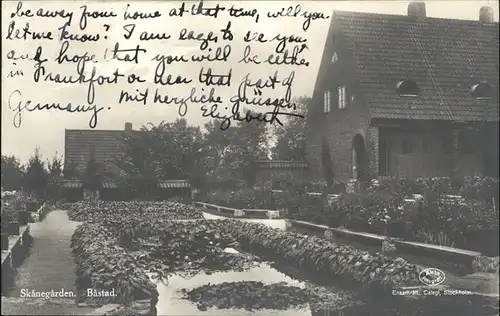 be away from home at that time, will you
let me know? I am eager to see you
and hope that you will be either
in Frankfort or near that part of
Germany. Mit herzliche grüssen,
Elizabeth
Skånegården. Båstad.
Ensamrätt. Calegi, Stockholm.